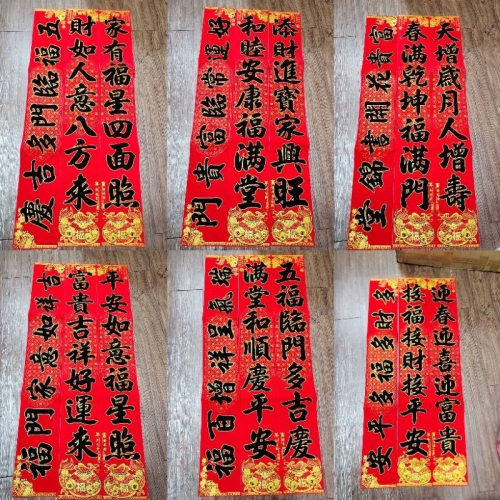 家有福星四面照
財如人意八方來
五福臨門多吉慶
福
添財進寶家興旺
和睦安康福满堂
好運常臨富貴門
福
天增歲月人增壽
春满乾坤福满門
富貴花開錦堂
福
平安如意福星照
富貴吉祥好運來
吉祥如意家門福
福
五福臨門多吉慶
满堂和順慶平安
瑞氣呈祥增百福
福
迎春迎喜迎富貴
接福接財接平安
多財多福多平安
福